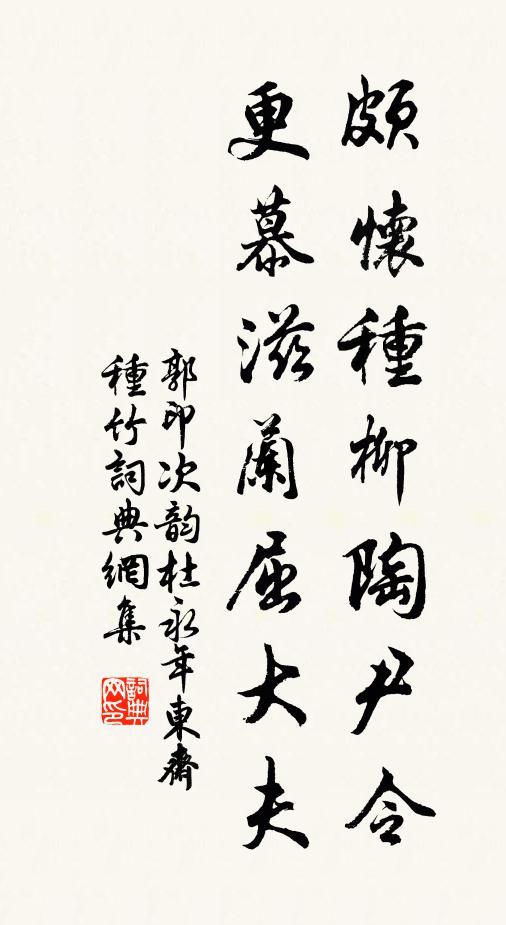 頗懷種柳陶尹令
更慕滋蘭屈大夫
郭印次韵杜永年東齋
種竹詞典網集
詞典網印